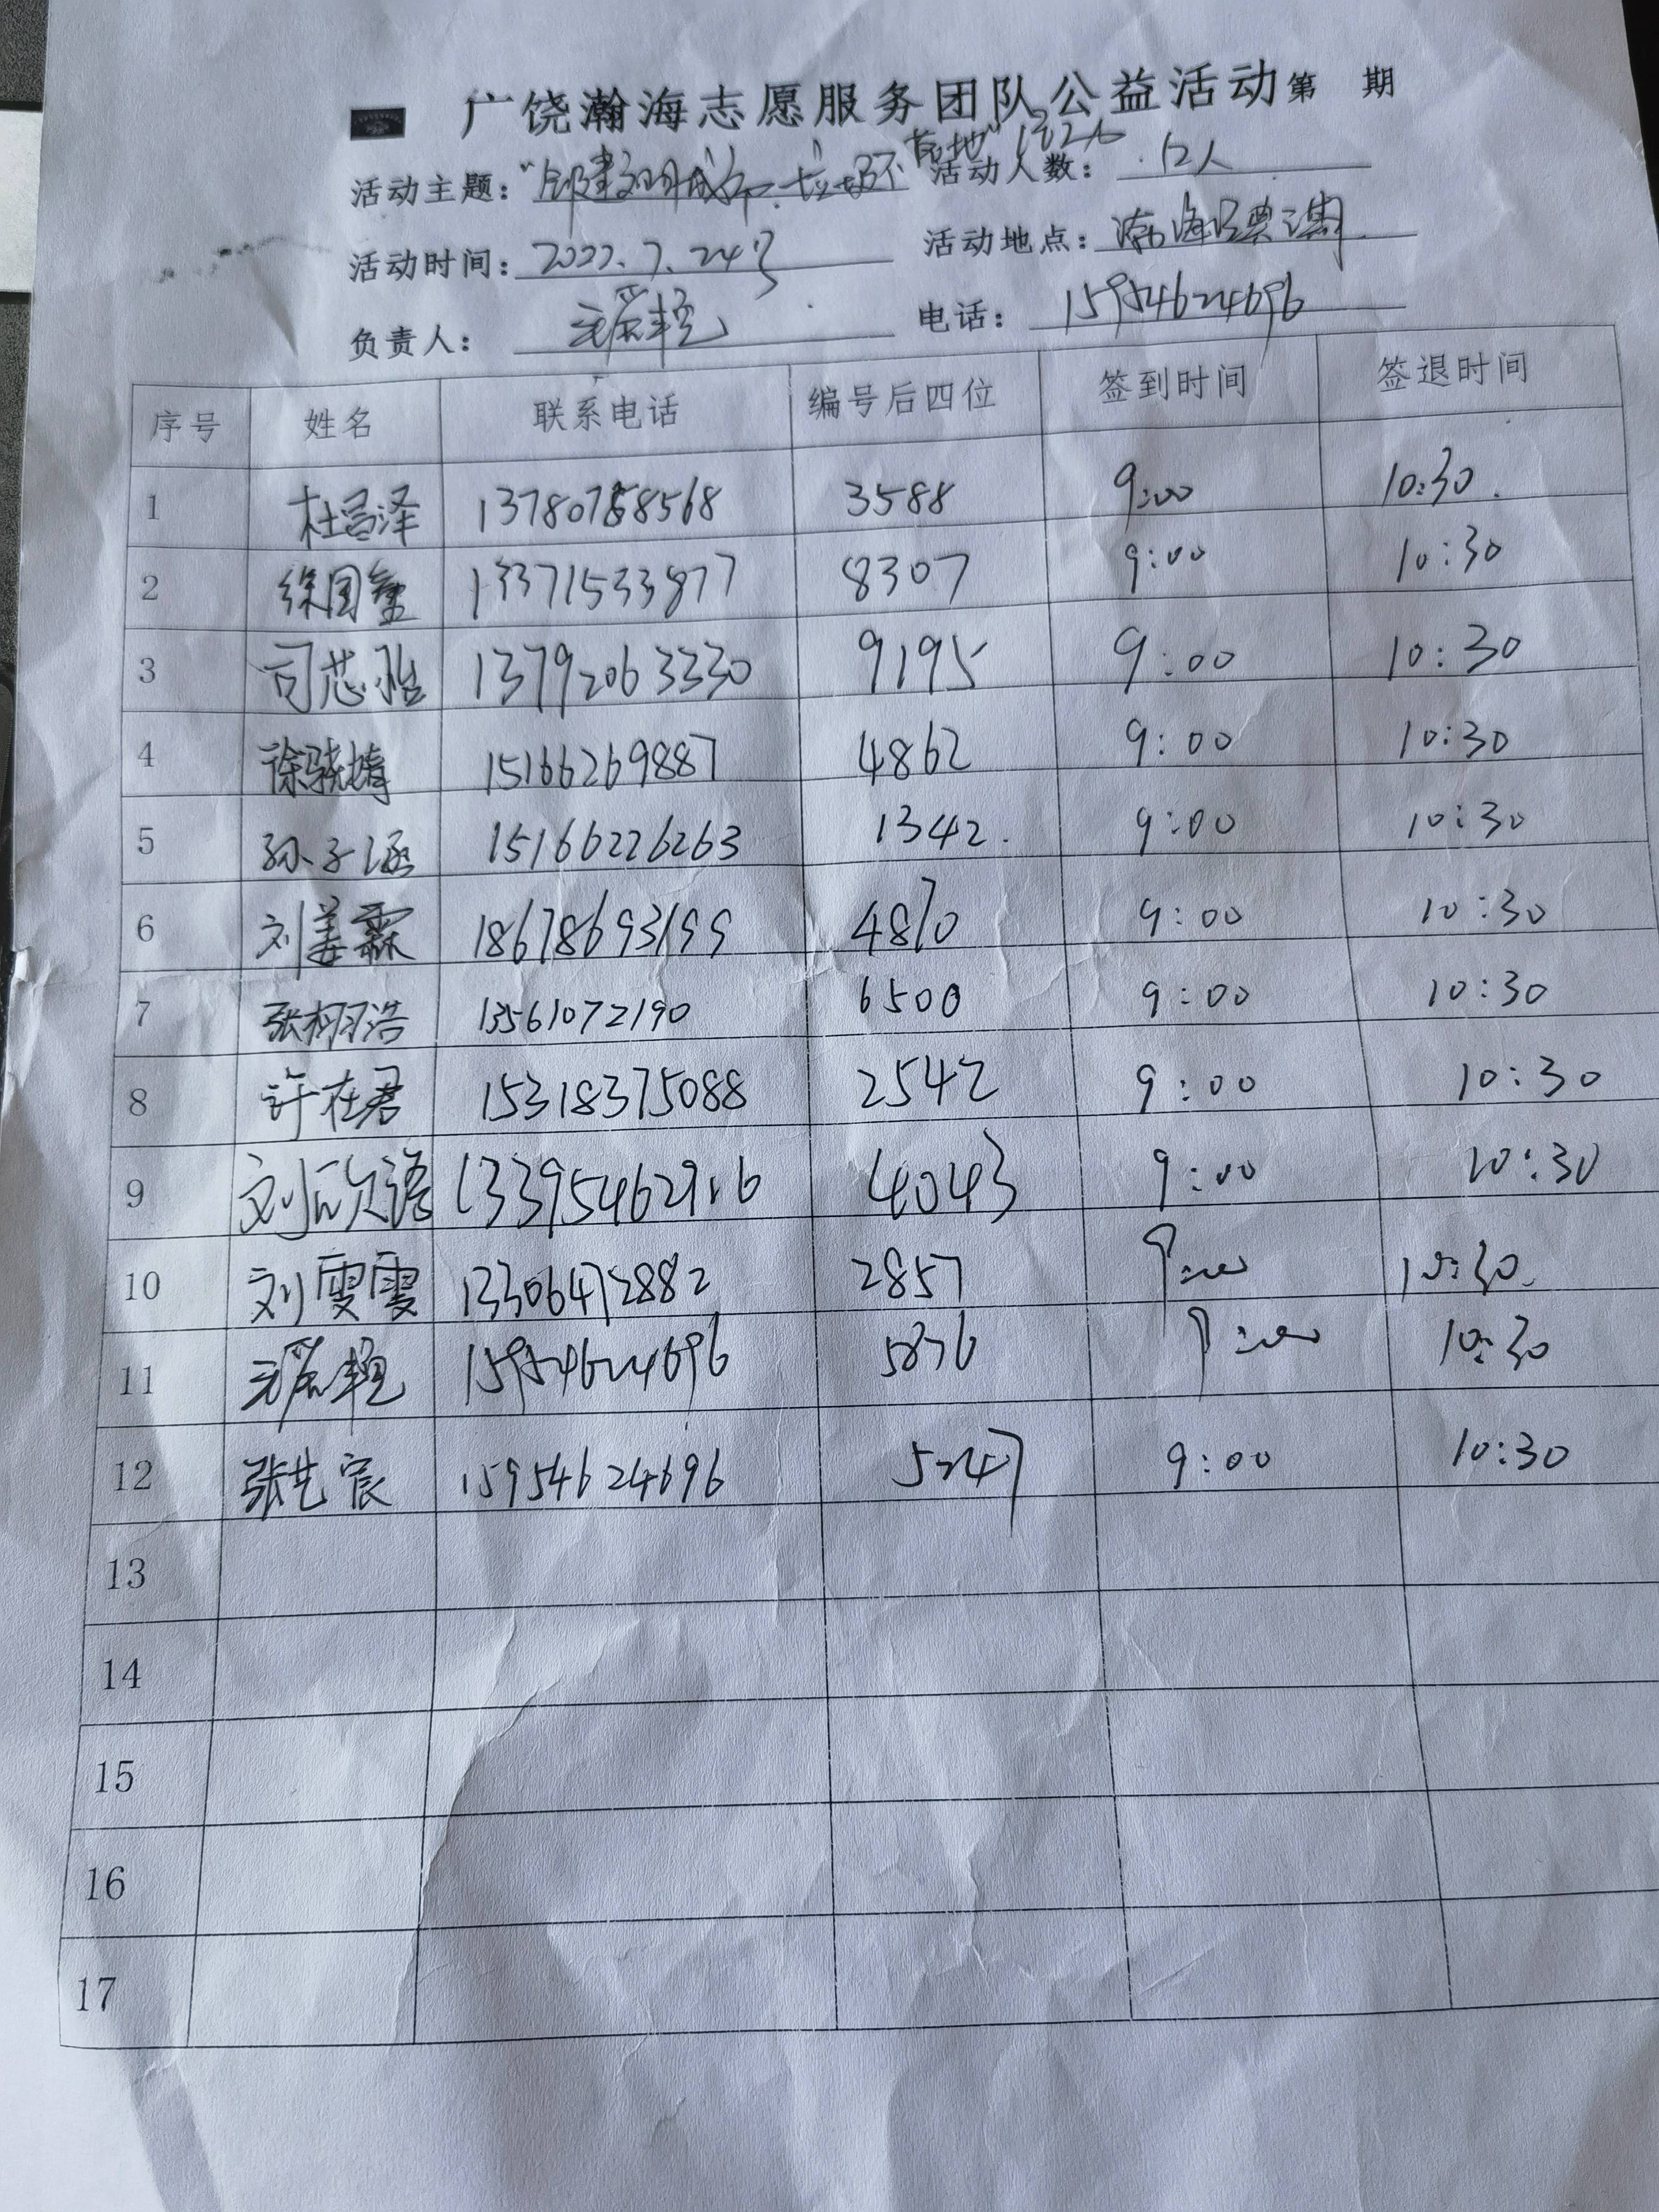 广饶瀚海志愿服务团队公益活动第 期
活动主题：“创建文明城市 垃圾不落地” 活动人数：12人
活动时间：2022.7.24号 活动地点：瀚海经典
负责人： 电话：15954624696
序号 姓名 联系电话 编号后四位 签到时间 签退时间
1 杜昌泽 13780758568 3588 9:00 10:30
2 徐国鑫 13371533877 8307 9:00 10:30
3 司芯 13792063330 9195 9:00 10:30
4 徐骁 15166269887 4862 9:00 10:30
5 孙子涵 15166226263 1342 9:00 10:30
6 刘姜霖 18678693199 4810 9:00 10:30
7 张栩浩 13561072190 6500 9:00 10:30
8 许在君 15318375088 2542 9:00 10:30
9 刘欣语 13395462916 4043 9:00 10:30
10 刘雯雯 13306472882 2857 9:00 10:30
11 15954624696 5836 9:00 10:30
12 张艺宸 15954624696 5247 9:00 10:30
13
14
15
16
17